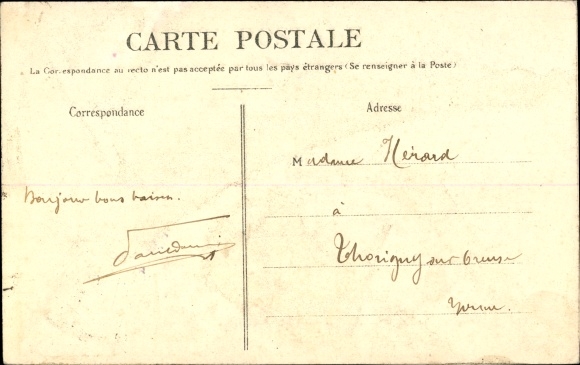 CARTE POSTALE
La Correspondance au recto n'est pas acceptée par tous les pays étrangers (Se renseigner à la Poste)
Correspondance
Adresse
Madame Hérard
Bonjour bons baisers.
à
Thorigny sur Oreuse
Yonne.